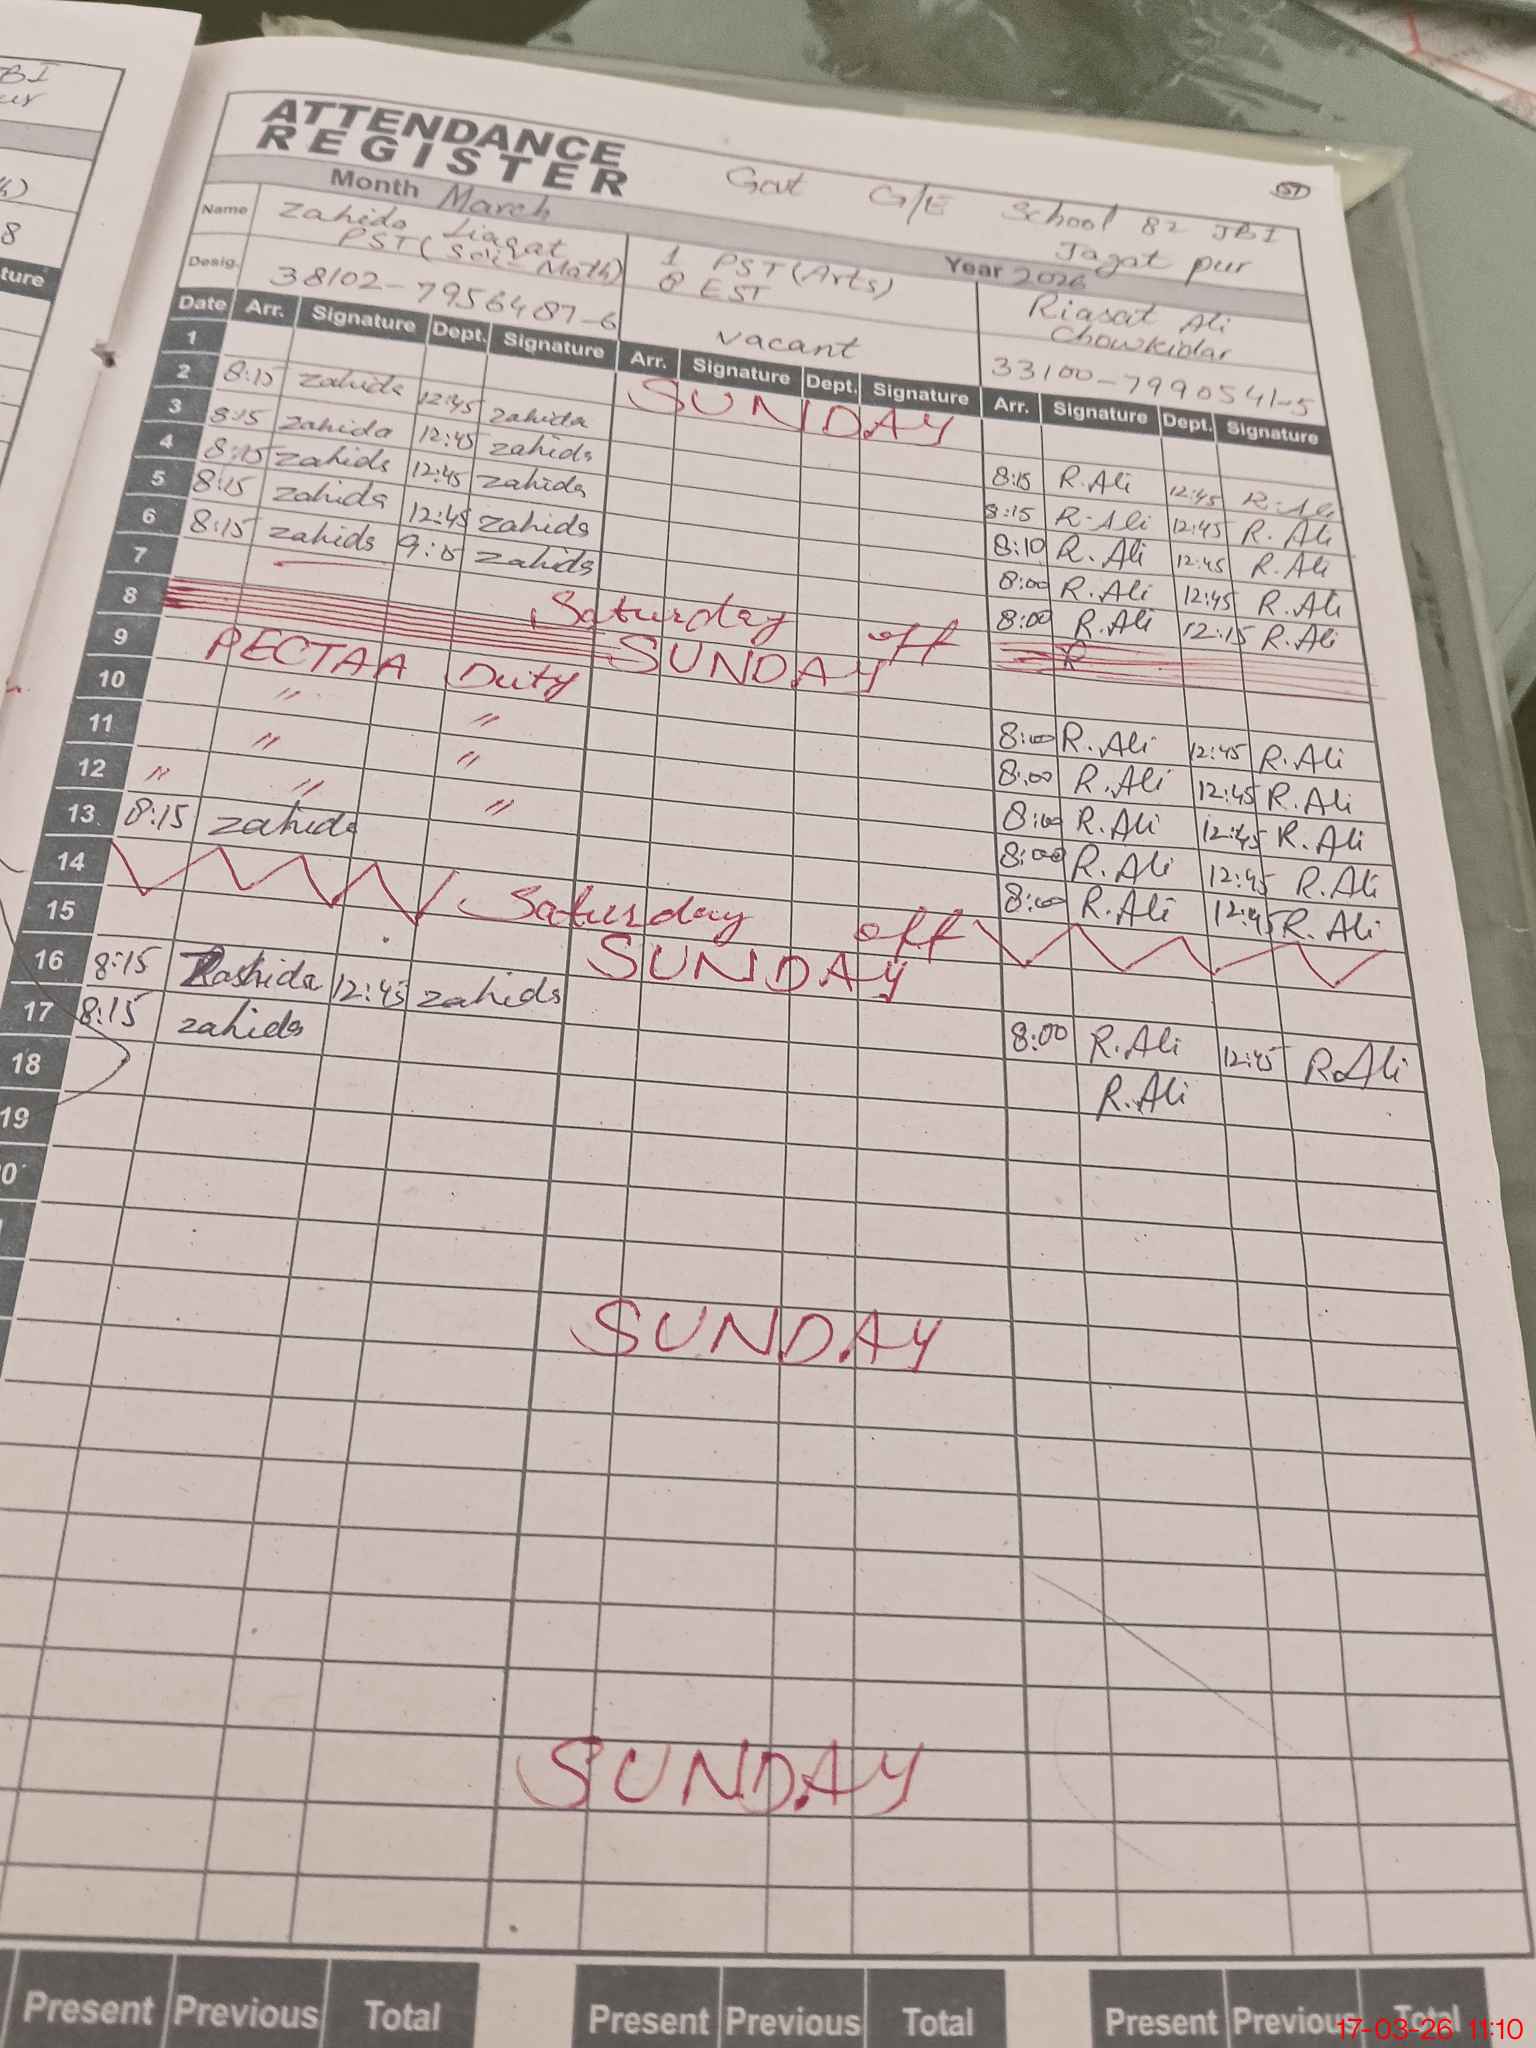 BI
ture
8
ATTENDANCE
REGISTER
Govt G/E School 82 JBI
Jagat pur
57
Month March
Year 2026
Name
Zahida Liaqat
PST (Sci-Math)
Desig.
38102-7956487-6
1 PST (Arts)
8 EST
vacant
Riasat Ali
Chowkidar
33100-7990541-5
Date Arr. Signature Dept. Signature Arr. Signature Dept. Signature Arr. Signature Dept. Signature
1 SUNDAY
2 8:15 zahida 12:45 zahida 8:15 R.Ali 12:45 R.Ali
3 8:15 zahida 12:45 zahida 8:15 R.Ali 12:45 R.Ali
4 8:15 zahida 12:45 zahida 8:10 R.Ali 12:45 R.Ali
5 8:15 zahida 12:45 zahida 8:00 R.Ali 12:45 R.Ali
6 8:15 zahida 9:15 zahida 8:00 R.Ali 12:15 R.Ali
7 Saturday off R
8 SUNDAY
9 PECTAA Duty 8:00 R.Ali 12:45 R.Ali
10 " " 8:00 R.Ali 12:45 R.Ali
11 " " 8:00 R.Ali 12:45 R.Ali
12 " " " 8:00 R.Ali 12:45 R.Ali
13 8:15 zahida 8:00 R.Ali 12:45 R.Ali
14 Saturday off
15 SUNDAY
16 8:15 Rashida 12:45 zahida 8:00 R.Ali 12:45 R.Ali
17 8:15 zahida R.Ali
18
19
0
SUNDAY
SUNDAY
Present Previous Total Present Previous Total Present Previous Total
17-03-26 11:10